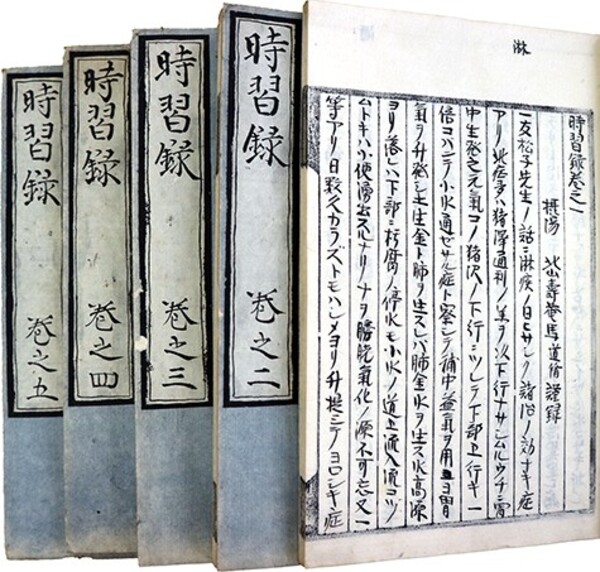 淋
時習録巻之一
摂陽 北山壽菴馬道脩謹録
一友松子先生ノ話ニ淋疾ノ日ヒサシク諸治ノ効ナキ症
アリ此症多ハ猪澤通利ノ薬ヲ以下行ナサシムルウチニ胃
中生発之元氣コノ猪沢ノ下行ニツレテ下部上行ナキ一
倍コハンテ小水通ゼザル症ト察シテ補中益氣ヲ用ユ胃
氣ヲ升発シ土生金ト肺ヲ生スレバ肺金水ヲ生ス水高源
ヨリ落レハ下部ニ朽腐ノ停水モ小水ノ道上流
ムトキハ小便湧出スルナリナヲ膀胱氣化ノ源不可忘又一
等アリ日数久カラズトモハシメヨリ升提シテヨロシキ症
時習録 巻之二
時習録 巻之三
時習録 巻之四
時習録 巻之五